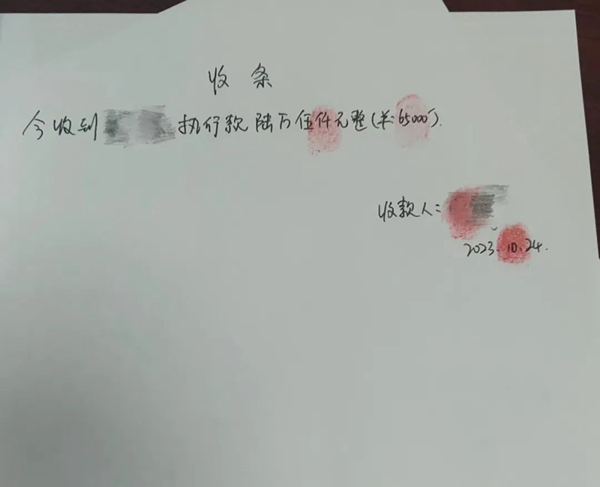 收条
今收到 执行款陆万伍仟元整(¥:65000).
收款人:
2023.10.24.